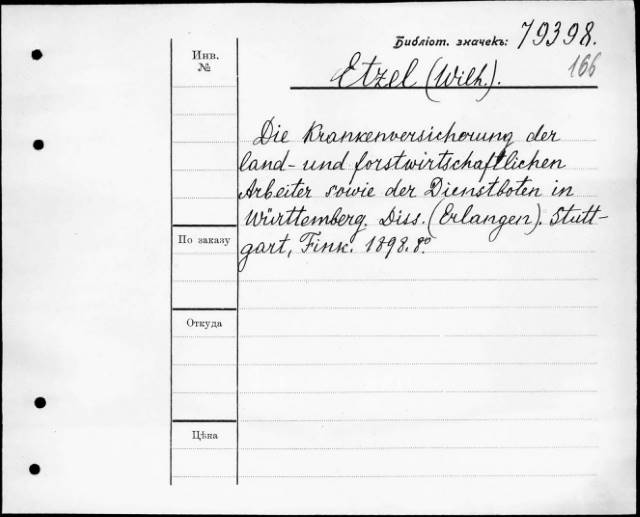 Библіот. значекъ: 79398.
166
Etzel (Wilh.).
Инв.
№
Die Krankenversicherung der
land- und forstwirtschaftlichen
Arbeiter sowie der Dienstboten in
Württemberg. Diss. (Erlangen). Stutt-
gart, Fink. 1898. 8º
По заказу
Откуда
Цѣна